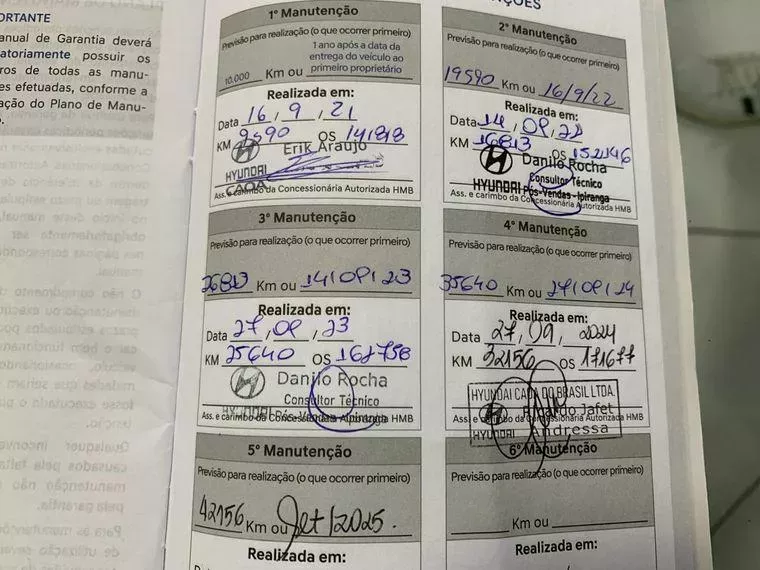 ORTANTE
anual de Garantia deverá
atoriamente possuir os
ros de todas as manu-
es efetuadas, conforme a
ação do Plano de Manu-
1º Manutenção
Previsão para realização (o que ocorrer primeiro)
10.000 Km ou 1 ano após a data da entrega do veículo ao primeiro proprietário
Realizada em:
Data 16, 9, 21
KM 9590 OS 141818
Erik Araujo
HYUNDAI
CAOA
Ass. e carimbo da Concessionária Autorizada HMB
ÇÕES
2º Manutenção
Previsão para realização (o que ocorrer primeiro)
19590 Km ou 16/9/22
Realizada em:
Data 14, 09, 22
KM 16813 OS 152146
Danilo Rocha
Consultor Técnico
HYUNDAI Pós-Vendas - Ipiranga
Ass. e carimbo da Concessionária Autorizada HMB
3º Manutenção
Previsão para realização (o que ocorrer primeiro)
26813 Km ou 14/09/23
Realizada em:
Data 27, 09, 23
KM 25640 OS 162758
Danilo Rocha
Consultor Técnico
HYUNDAI Pós-Vendas - Ipiranga
Ass. e carimbo da Concessionária Autorizada HMB
4º Manutenção
Previsão para realização (o que ocorrer primeiro)
35640 Km ou 27/09/24
Realizada em:
Data 27, 09, 2024
KM 32156 OS 171677
HYUNDAI CAOA DO BRASIL LTDA.
Ricardo Jafet
Ass. e carimbo da Concessionária Autorizada HMB
HYUNDAI Andressa
5º Manutenção
Previsão para realização (o que ocorrer primeiro)
42156 Km ou Set/2025.
Realizada em:
6º Manutenção
Previsão para realização (o que ocorrer primeiro)
Km ou
Realizada em: